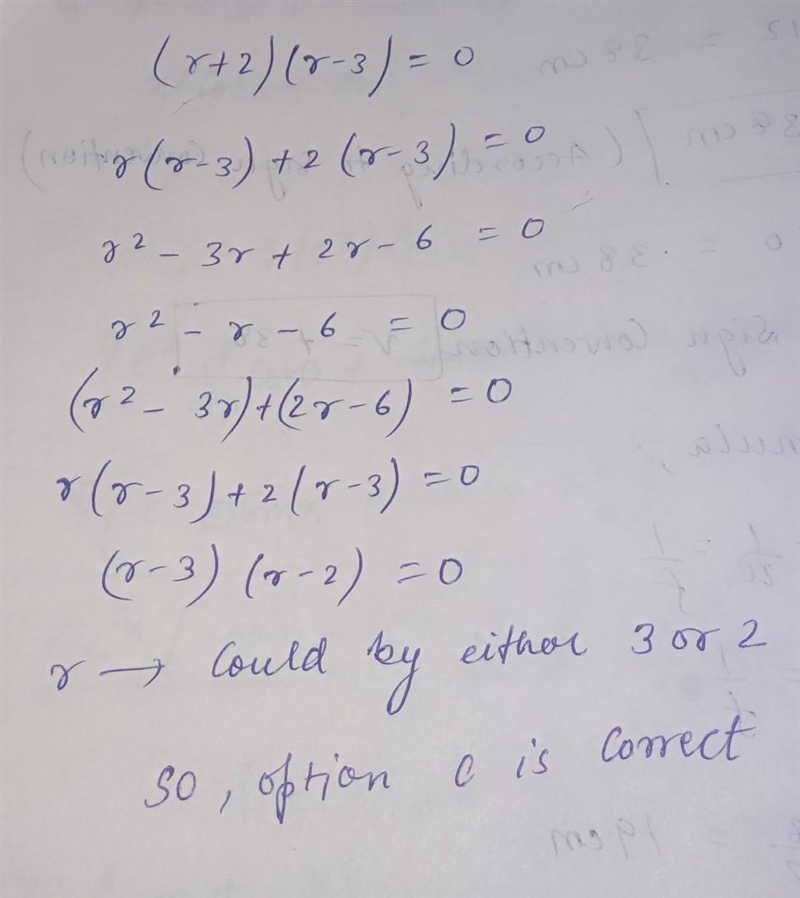 (r+2)(r-3) = 0
r(r-3) + 2(r-3) = 0
r² - 3r + 2r - 6 = 0
r² - r - 6 = 0
(r² - 3r)+(2r-6) = 0
r(r-3)+2(r-3) = 0
(r-3) (r-2) = 0
r → Could by either 3 or 2
SO, option C is Correct